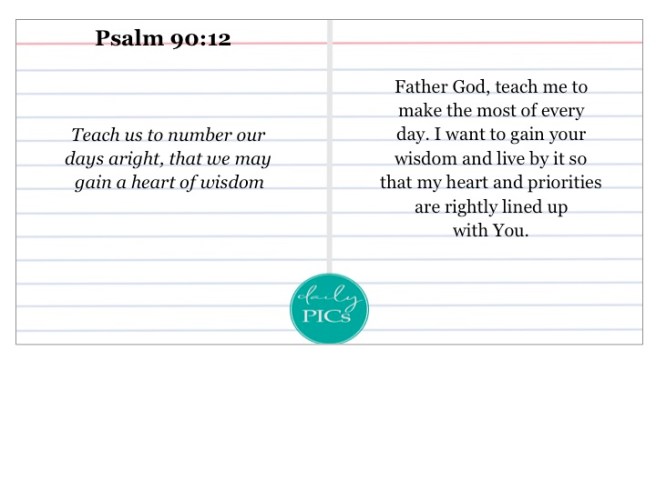 Psalm 90:12
Teach us to number our
days aright, that we may
gain a heart of wisdom
Father God, teach me to
make the most of every
day. I want to gain your
wisdom and live by it so
that my heart and priorities
are rightly lined up
with You.
daily
PICs